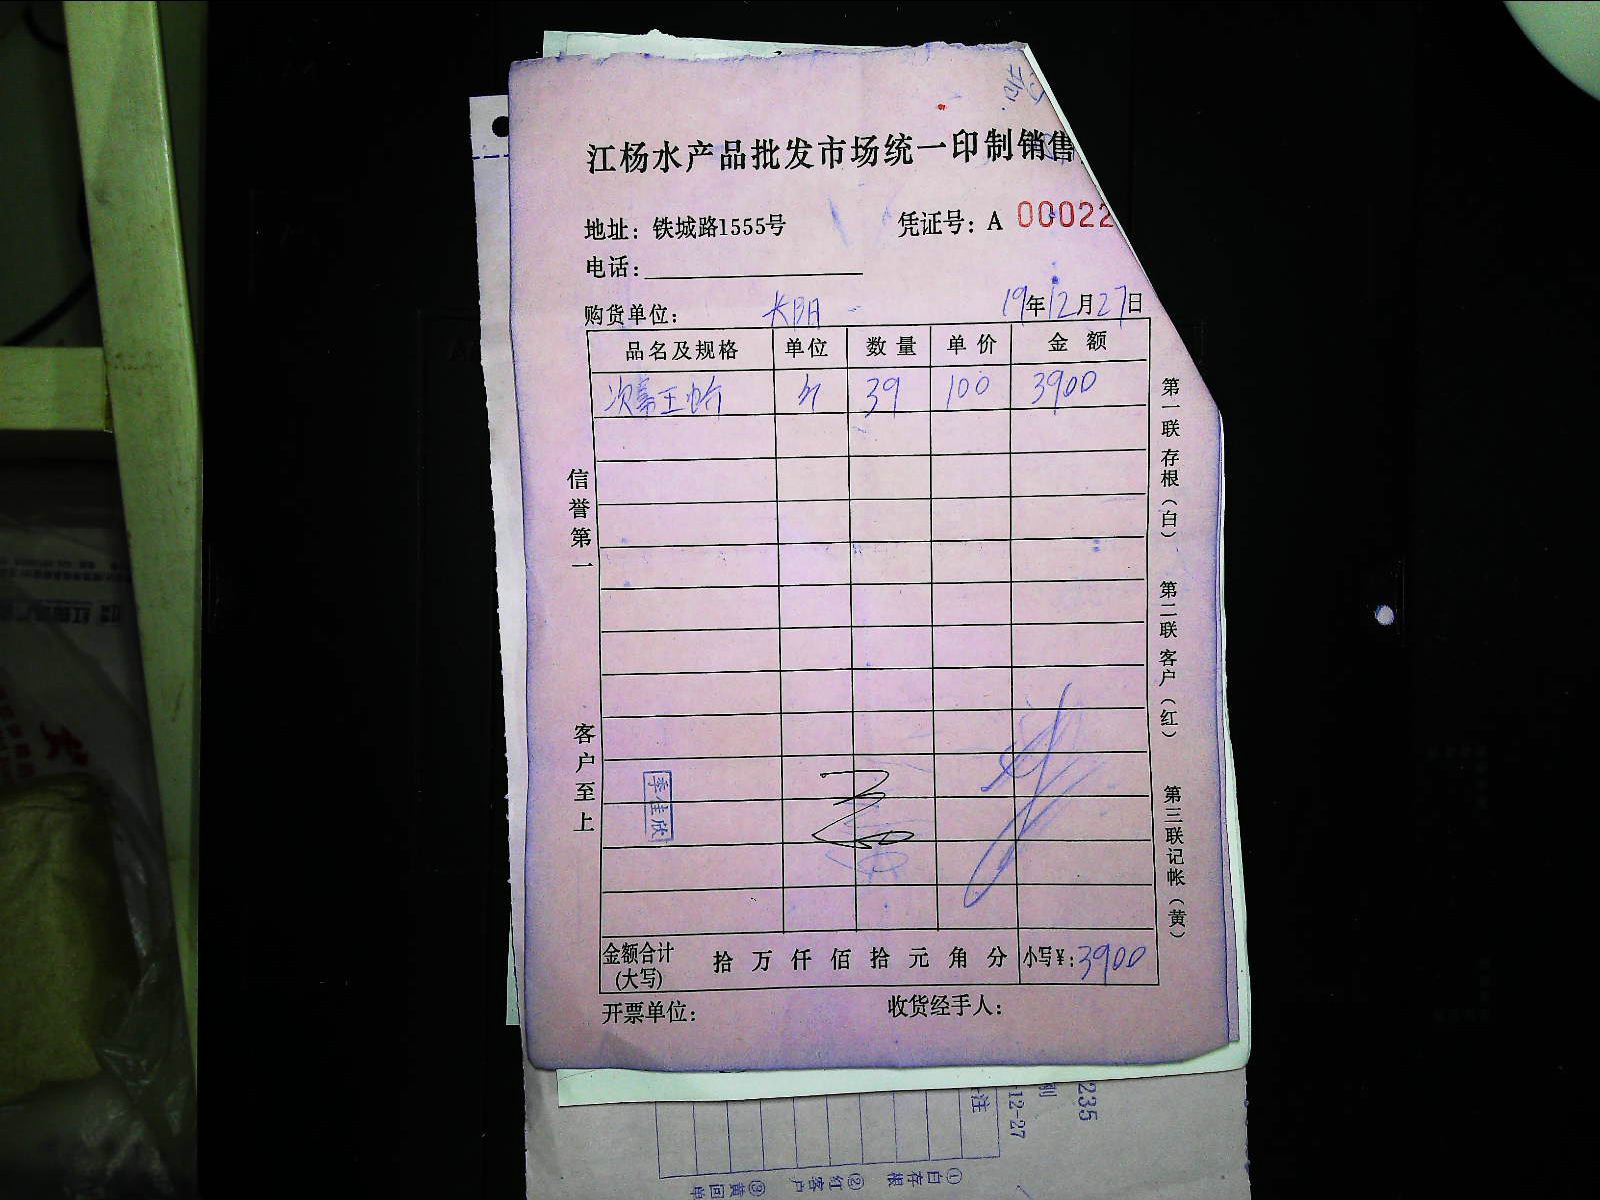 江杨水产品批发市场统一印制销售
地址：铁城路1555号 凭证号：A 00022
电话：
购货单位： 长阳 19年12月27日
品名及规格 单位 数量 单价 金额
斤 39 100 3900
信誉第一
客户至上
第一联存根（白）
第二联客户（红）
第三联记帐（黄）
季佳欣
金额合计(大写) 拾 万 仟 佰 拾 元 角 分 小写¥：3900
开票单位： 收货经手人：
235
12-27
注
①白存根 ②红客户 ③黄回单